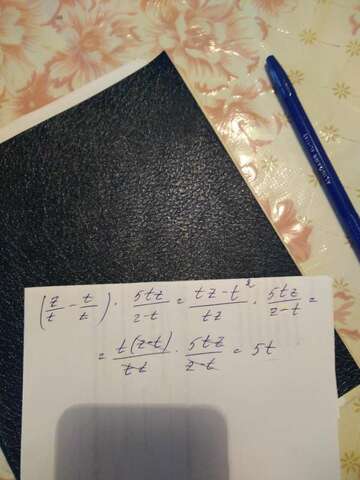 (z/t - t/t) · 5tz/z-t = tz-t²/tz · 5tz/z-t =
= t(z-t)/tz · 5tz/z-t = 5t